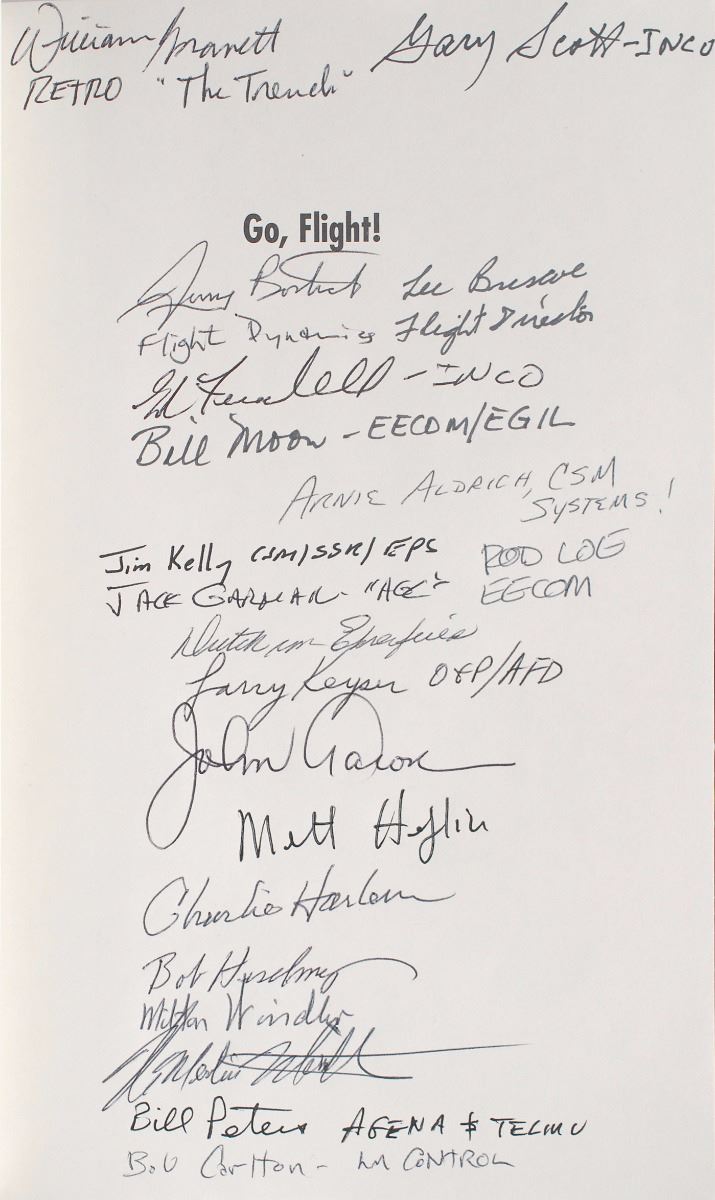 William Gravett Gary Scott-INCO
RETRO "The Trench"
Go, Flight!
Jerry Bostick Lee Briscoe
Flight Dynamics Flight Director
Ed. Fendell - INCO
Bill Moon - EECOM/EGIL
ARNIE ALDRICH, CSM
SYSTEMS!
Jim Kelly CSM/SSR/EPS ROD LOE
JACK GARMAN - "AGC" EECOM
Dutch von Ehrenfried
Larry Keyser O&P/AFD
John Aaron
Milt Heflin
Charlie Harlan
Bob Heselmeyer
Milton Windler
Bill Peters AGENA & TELMU
Bob Carlton - LM CONTROL